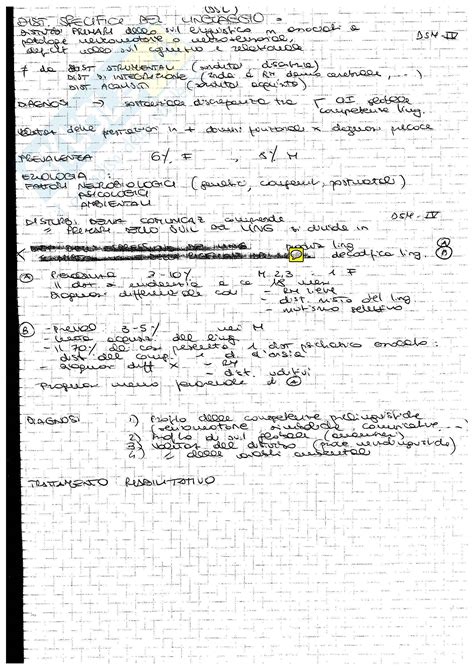 (DSL)
DIST. SPECIFICI DEL LINGUAGGIO:
DISTURBI PRIMARI dello svil linguistico non associati a DSM-IV
patologie neuromotorie o neurosensoriali,
deficit dello svil cognitivo e relazionale
≠ da DIST STRUMENTALI (sordità, disartria)
DIST DI INTEGRAZIONE (sorda e RM danno cerebrale, ...)
DIST ACQUISITI (sordità acquisita)
DIAGNOSI → sostanziale discrepanza tra QI globale
competenze ling.
Valutaz delle prestazioni in + domini funzionali x diagnosi precoce
PREVALENZA 6% F , 8% M
EZIOLOGIA:
FATTORI NEUROBIOLOGICI (genetici, congeniti, postnatali)
PSICOLOGICI
AMBIENTALI
DISTURBI DELLA COMUNICAZ comprende DSM-IV
" PRIMARI DELLO SVIL DEL LING si divide in
ling (A)
decodifica ling. (B)
(A) Prevalenza 3-10% M 2,3 1 F
Il dist si evidenzia a 18 mesi
Diagnosi differenziale con - RM LIEVE
- dist. misto del ling
- mutismo selettivo
(B) - Preval 3-5% nei M
- lenta acquisiz del ling
- Il 70% dei casi presenta 1 dist psichiatrico associato:
dist del comp. 1 d. d'ansia
- diagnosi diff x - RM
- dist. uditivi
Prognosi meno favorevole di (A)
DIAGNOSI 1) Profilo delle competenze prelinguistiche
(sensomotorie simboliche, comunicative...)
2) Profilo di svil globale (anamnesi)
3) Valutaz del disturbo (prove neurolinguistiche)
4) " delle variabili ambientali
TRATTAMENTO RIABILITATIVO